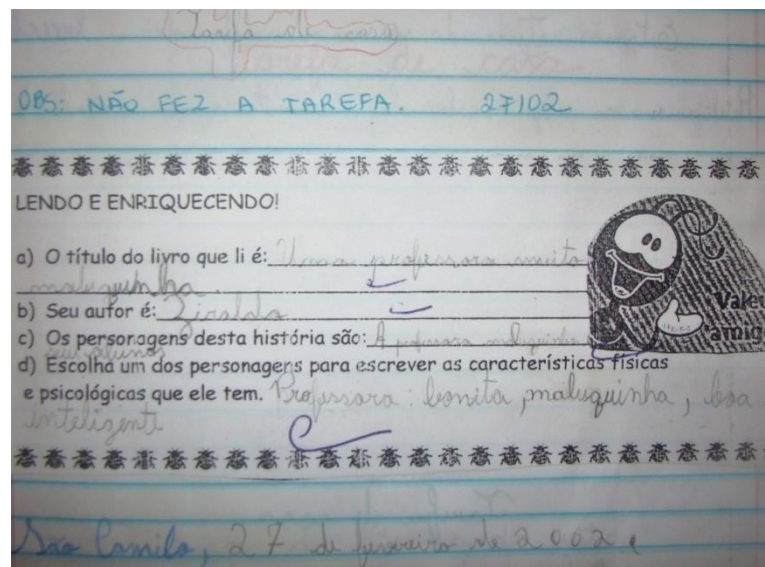 Tarefa de casa
OBS: NÃO FEZ A TAREFA. 27/02
LENDO E ENRIQUECENDO!
a) O título do livro que li é: Uma professora muito
maluquinha.
b) Seu autor é: Ziraldo
c) Os personagens desta história são: A professora maluquinha e
seus alunos
Valeu
amig
d) Escolha um dos personagens para escrever as características físicas
e psicológicas que ele tem. Professora: bonita, maluquinha, boa
inteligente
São Camilo, 27 de fevereiro de 2002